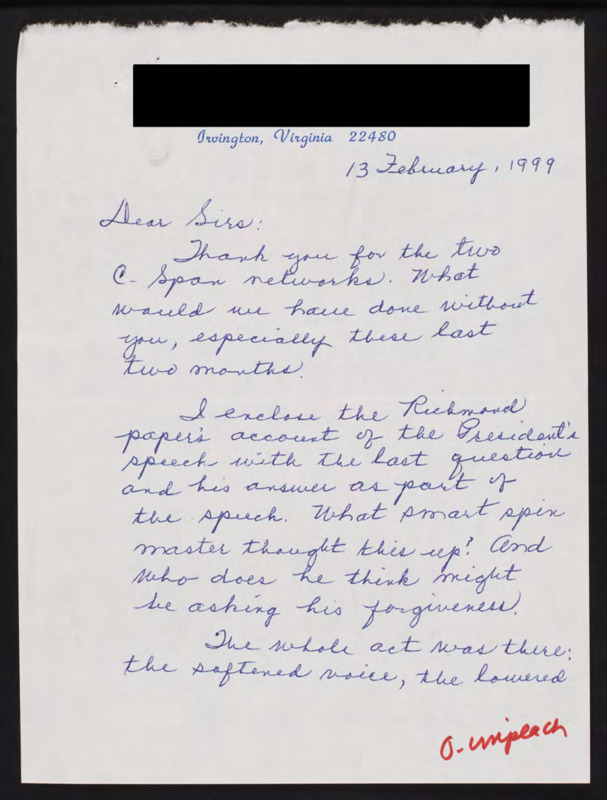 Irvington, Virginia 22480
13 February, 1999
Dear Sirs:
Thank you for the two
C-Span networks. What
would we have done without
you, especially these last
two months.
I enclose the Richmond
paper's account of the President's
speech with the last question
and his answer as part of
the speech. What smart spin
master thought this up? And
who does he think might
be asking his forgiveness.
The whole act was there:
the softened voice, the lowered
O-impeach